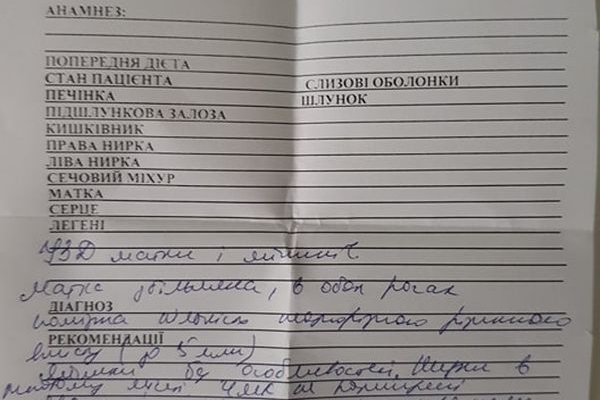 АНАМНЕЗ:
ПОПЕРЕДНЯ ДІЄТА
СТАН ПАЦІЄНТА СЛИЗОВІ ОБОЛОНКИ
ПЕЧІНКА ШЛУНОК
ПІДШЛУНКОВА ЗАЛОЗА
КИШКІВНИК
ПРАВА НИРКА
ЛІВА НИРКА
СЕЧОВИЙ МІХУР
МАТКА
СЕРЦЕ
ЛЕГЕНІ
УЗД матки і яйників
Матка збільшена, в обох рогах
ДІАГНОЗ
помірна кількість рідинного
РЕКОМЕНДАЦІЇ
вмісту (до 5 мм)
Яйники без особливостей. Нирки в